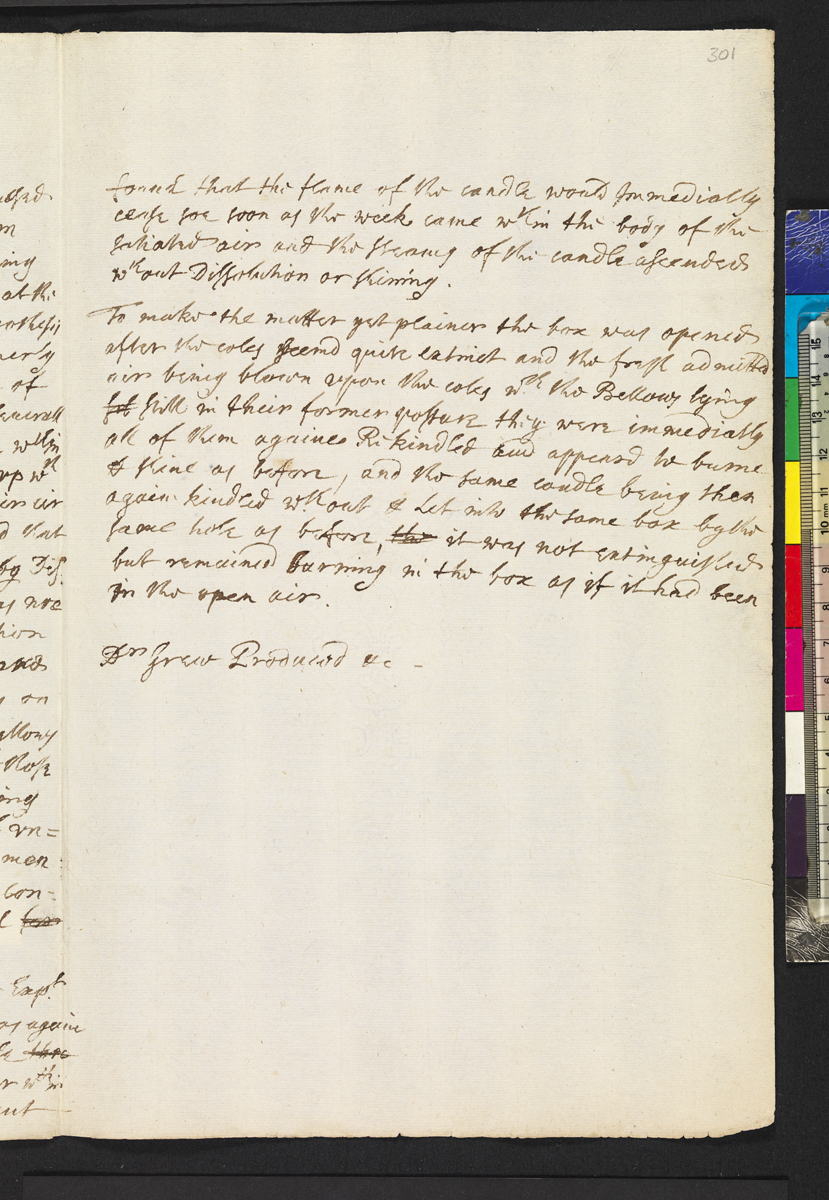 301
found that the flame of the candle would Immediatly
cease soe soon as the week came wth in the body of the
satiated air and the steams of the candle ascended
wth out Dissolution or shining.
To make the matter yet plainer the box was opened
after the coles seemd quite extinct and the fresh admitted
air being blown upon the coles wth the Bellows lying
still in their former posture they were immediatly
all of them againe Rekindled and appeard to burne
& shine as before, and the same candle being then
again kindled wth out & Let into the same box by the
same hole as before, the it was not extinguished
but remained burning in the box as if it had been
in the open air.
Dr Grew Produced &c -
ming
at the
nerly
of
Generall
wthin
wth
air
d that
by Dis
as not
tion
on
those
ing
un=
men
con=
Expt.
as again
thre
wth in
out